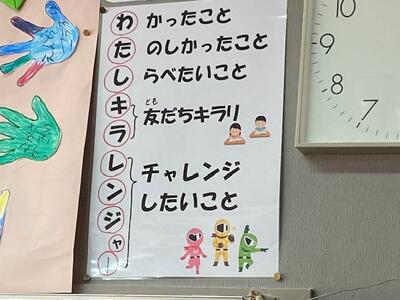 わかったこと
たのしかったこと
しらべたいこと
キラ
とも
友だちキラリ
レンジャー
チャレンジ
したいこと
10
9
8
7